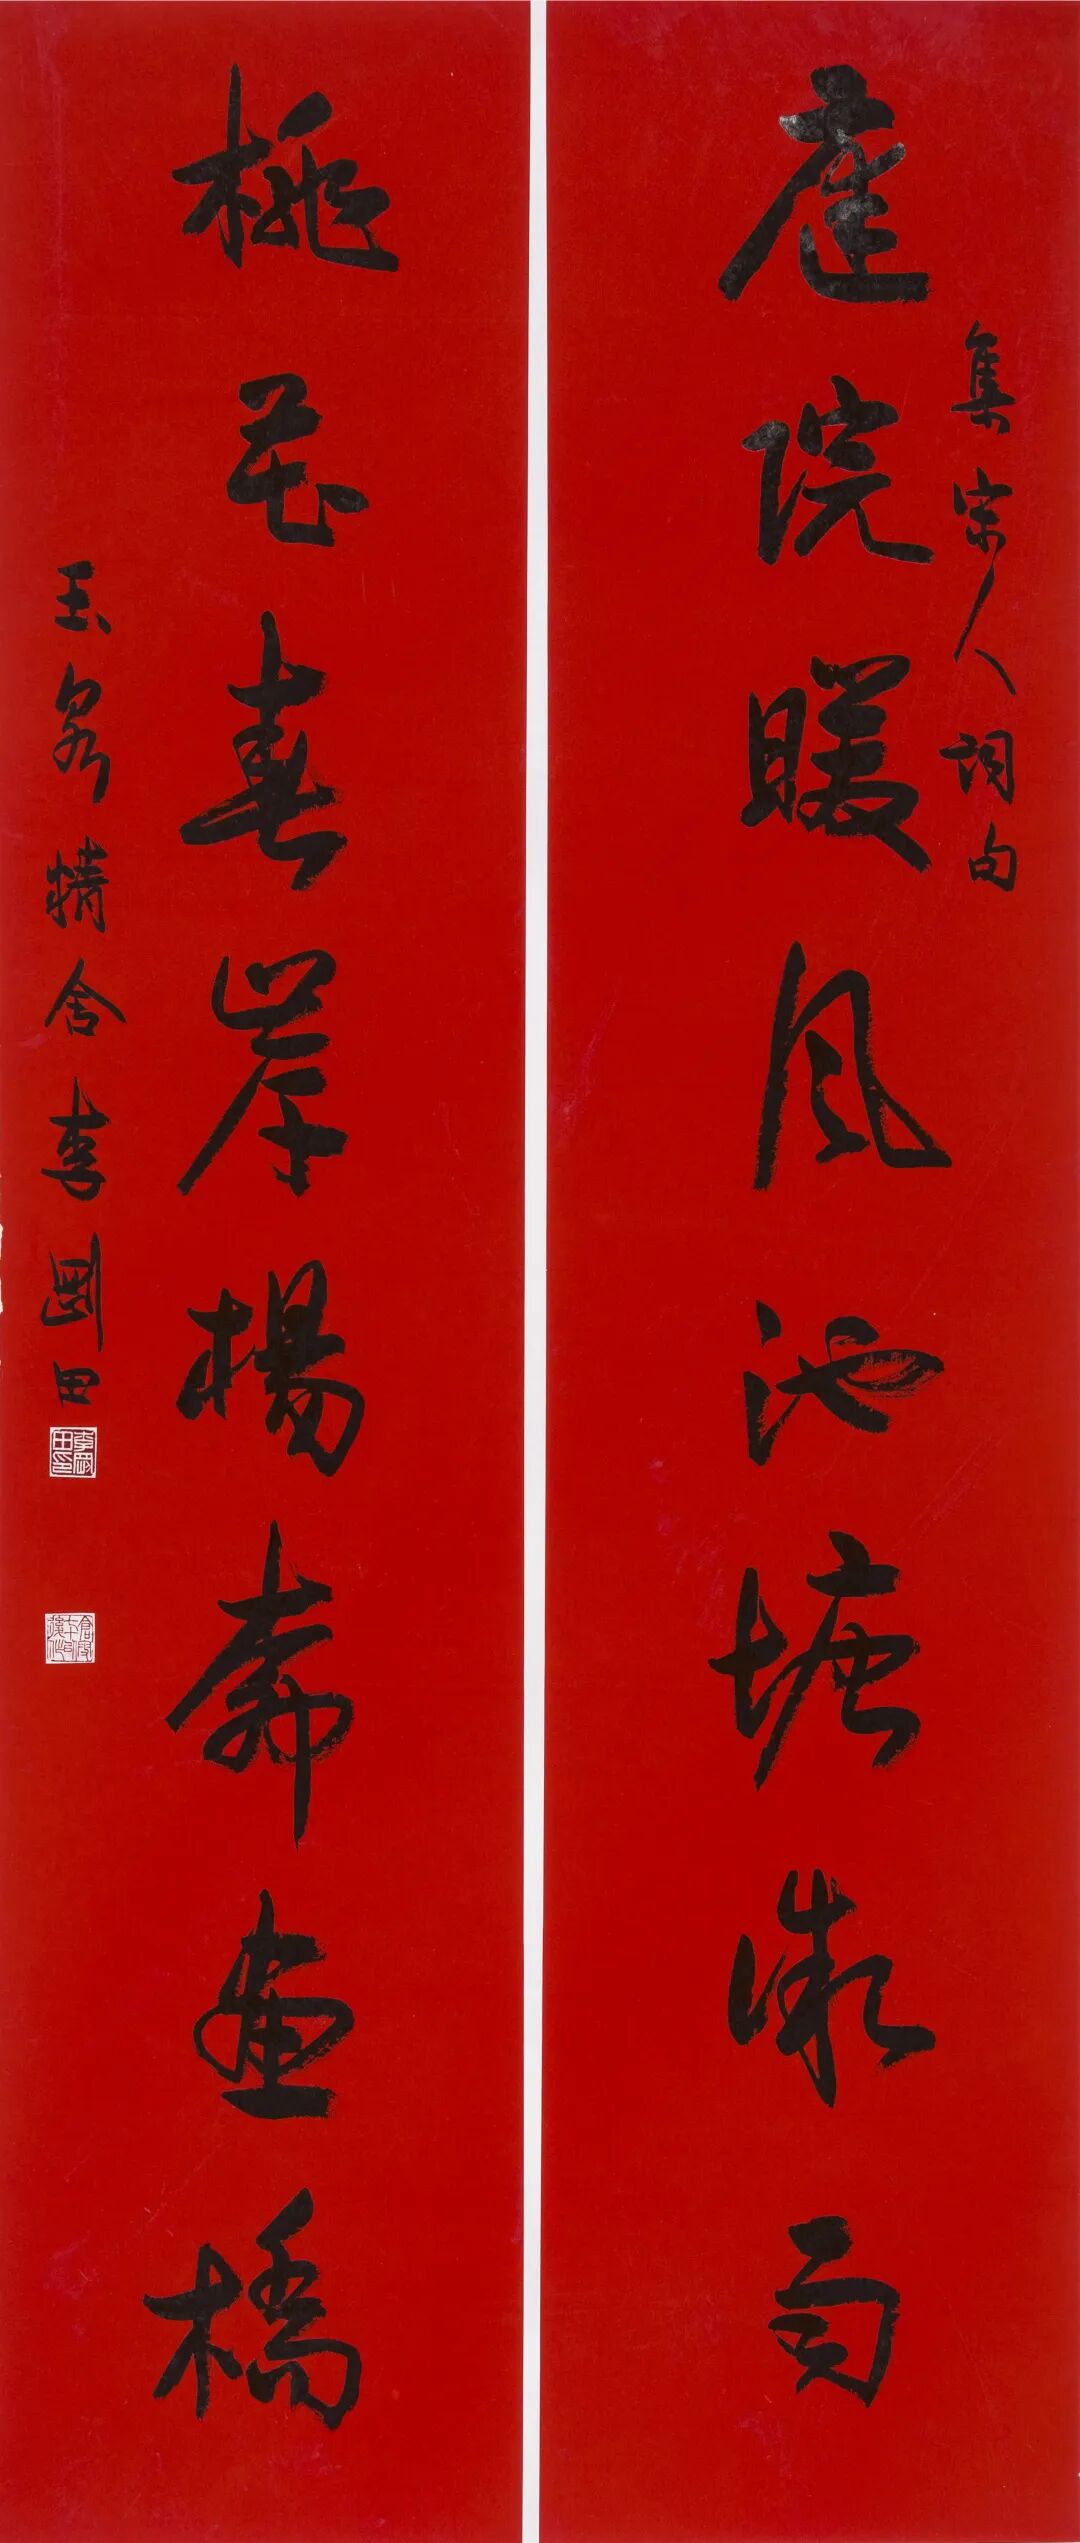 庭院暖風池塘微雨
集宋人詞句
桃花春岸楊柳畫橋
玉泉精舍李剛田
李剛田印